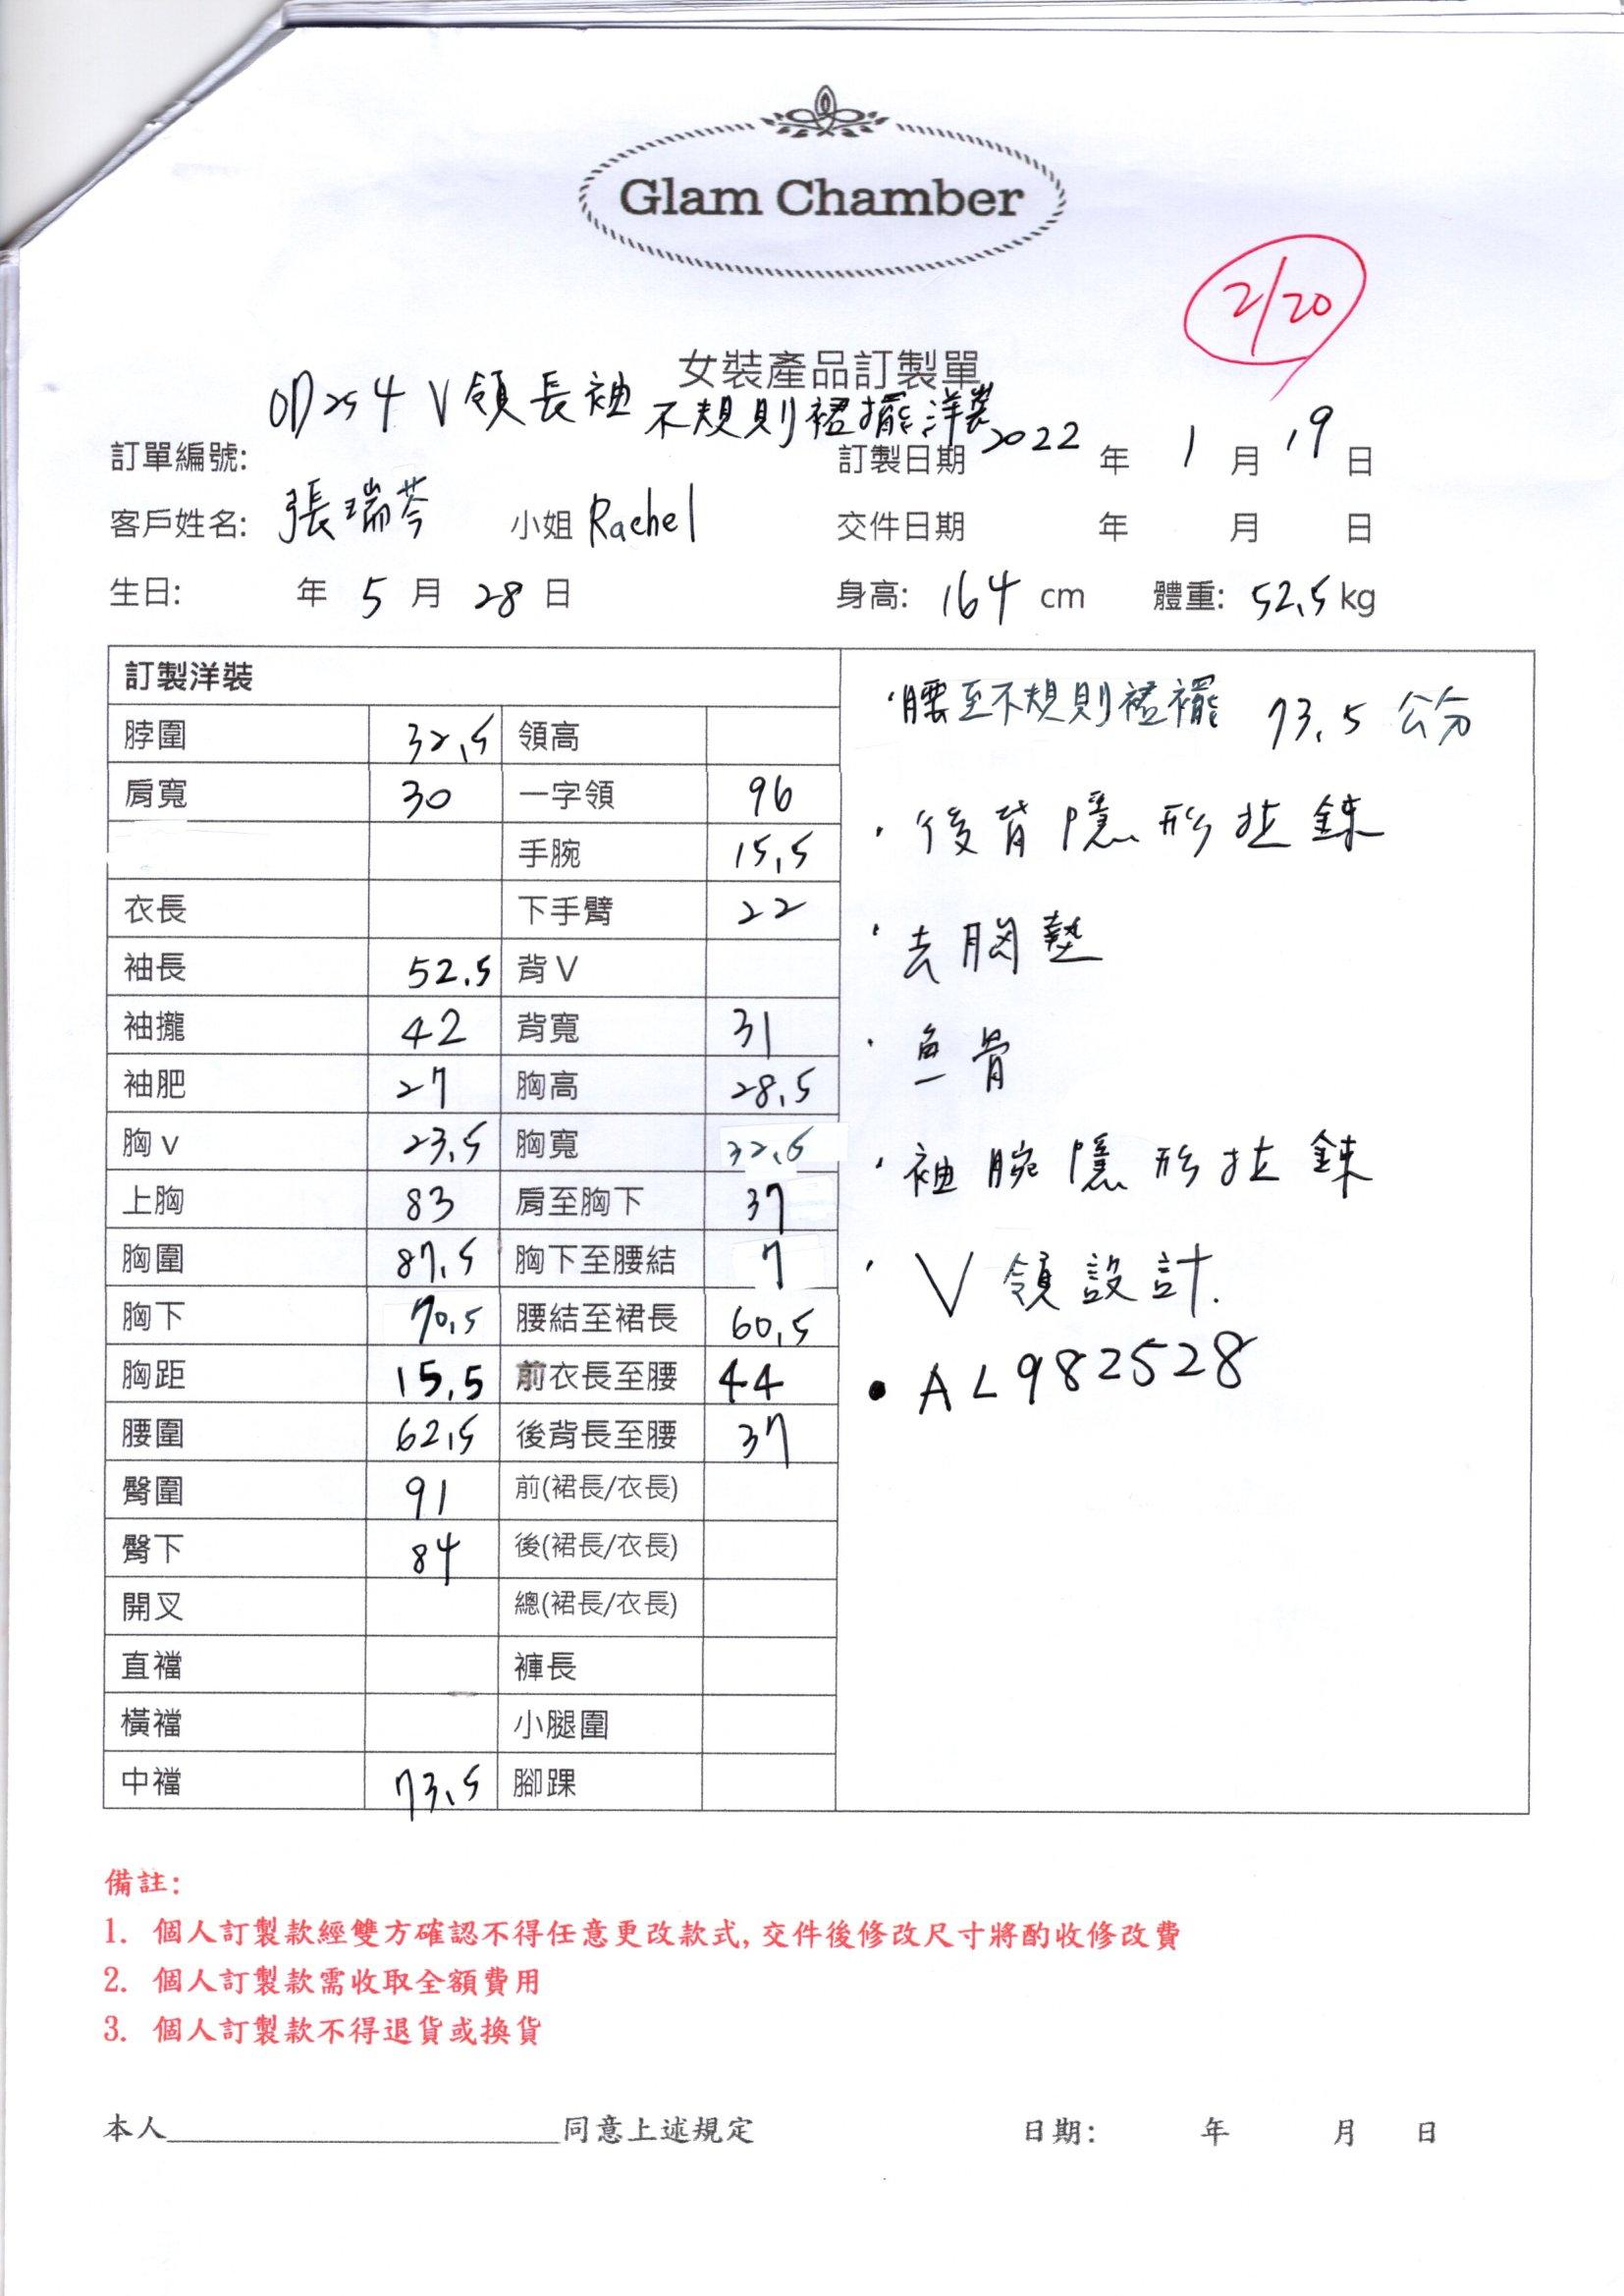 Glam Chamber
2/20
女裝產品訂製單
OD254 V領長袖 不規則裙擺洋裝
訂單編號: 訂製日期 2022 年 1 月 19 日
客戶姓名: 張瑞芩 小姐 Rachel 交件日期 年 月 日
生日: 年 5 月 28 日 身高: 164 cm 體重: 52.5 kg
訂製洋裝
脖圍 32.5 領高
肩寬 30 一字領 96
手腕 15.5
衣長 下手臂 22
袖長 52.5 背V
袖攏 42 背寬 31
袖肥 27 胸高 28.5
胸v 23.5 胸寬 32.5
上胸 83 肩至胸下 37
胸圍 87.5 胸下至腰結 7
胸下 70.5 腰結至裙長 60.5
胸距 15.5 前衣長至腰 44
腰圍 62.5 後背長至腰 37
臀圍 91 前(裙長/衣長)
臀下 84 後(裙長/衣長)
開叉 總(裙長/衣長)
直襠 褲長
橫襠 小腿圍
中襠 73.5 腳踝
·腰至不規則裙襬 73.5 公分
·後背隱形拉鍊
·去胸墊
·魚骨
·袖腕隱形拉鍊
·V領設計.
•AL982528
備註:
1. 個人訂製款經雙方確認不得任意更改款式, 交件後修改尺寸將酌收修改費
2. 個人訂製款需收取全額費用
3. 個人訂製款不得退貨或換貨
本人 同意上述規定 日期: 年 月 日